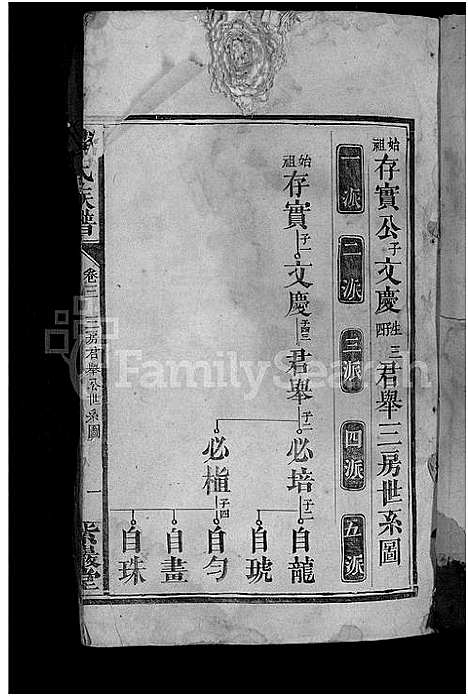 始祖存實公子文慶生四子三君舉三房世系圖
一派 二派 三派 四派 五派
始祖存實子一文慶子四三君舉子二必培子二自龍
自琥
必楦子四自勻
自畫
自珠
氏族譜 卷三 三房君舉公世系圖 一
FamilySearch